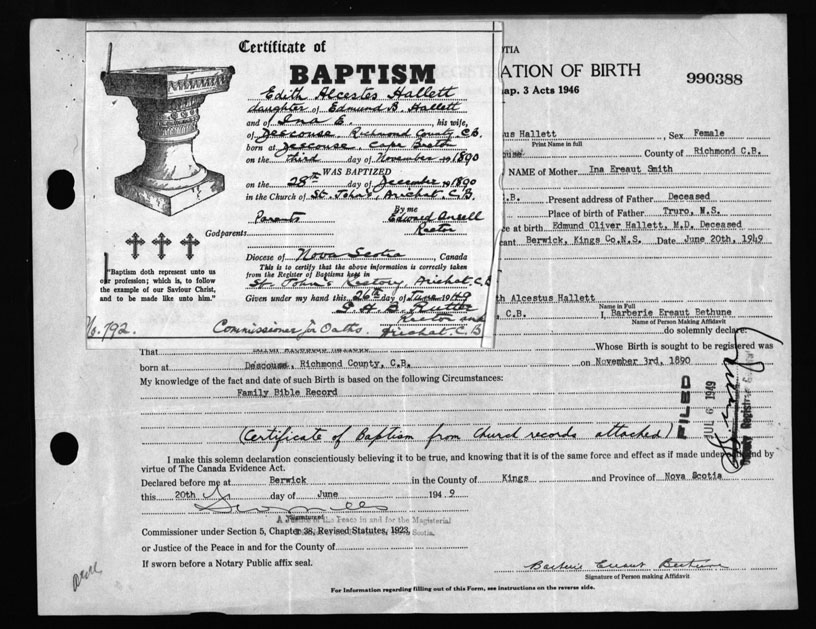 Certificate of
BAPTISM
Edith Alcestes Hallett
daughter of Edmund B. Hallett
and of Ina E. , his wife,
of Descouse, Richmond County C.B.
born at Descouse, Cape Breton
on the third day of November 1890
WAS BAPTIZED
on the 28th day of December 1890
in the Church of St. John's, Arichat, C.B.
By me
Parents Edward Ansell
Rector
Godparents
Diocese of Nova Scotia, Canada
This is to certify that the above information is correctly taken
from the Register of Baptisms kept in
St. John's Rectory, Arichat, C.B
Given under my hand this 26th day of June 1949
Rector and
Commissioner for Oaths. Arichat, C.B
No. 792.
"Baptism doth represent unto us
our profession; which is, to follow
the example of our Saviour Christ,
and to be made like unto him."
OTIA
ATION OF BIRTH
990388
ap. 3 Acts 1946
us Hallett , Sex Female
Print Name in full
County of Richmond C.B.
NAME OF Mother Ina Ereaut Smith
C.B. Present address of Father Deceased
Place of birth of Father Truro, N.S.
ce at birth Edmund Oliver Hallett, M.D, Deceased
cant Berwick, Kings Co.N.S, Date June 20th, 1949
th Alcestus Hallett
Name in Full
, C.B. I, Barberie Ereaut Bethune
Name of Person Making Affidavit
do solemnly declare:
That Whose Birth is sought to be registered was
born at Descouse, Richmond County, C.B. on November 3rd, 1890
My knowledge of the fact and date of such Birth is based on the following Circumstances:
Family Bible Record
(Certificate of Baptism from church records attached)
FILED
JUL 6 1949
Deputy Registrar
I make this solemn declaration conscientiously believing it to be true, and knowing that it is of the same force and effect as if made under by
virtue of The Canada Evidence Act.
Declared before me at Berwick in the County of Kings and Province of Nova Scotia
this 20th day of June 1949
A Justice of the Peace in and for the Magisterial
Commissioner under Section 5, Chapter 38, Revised Statutes, 1923,
or Justice of the Peace in and for the County of
If sworn before a Notary Public affix seal.
Barberie Ereaut Bethune
Signature of Person making Affidavit
For Information regarding filling out of this Form, see instructions on the reverse side.